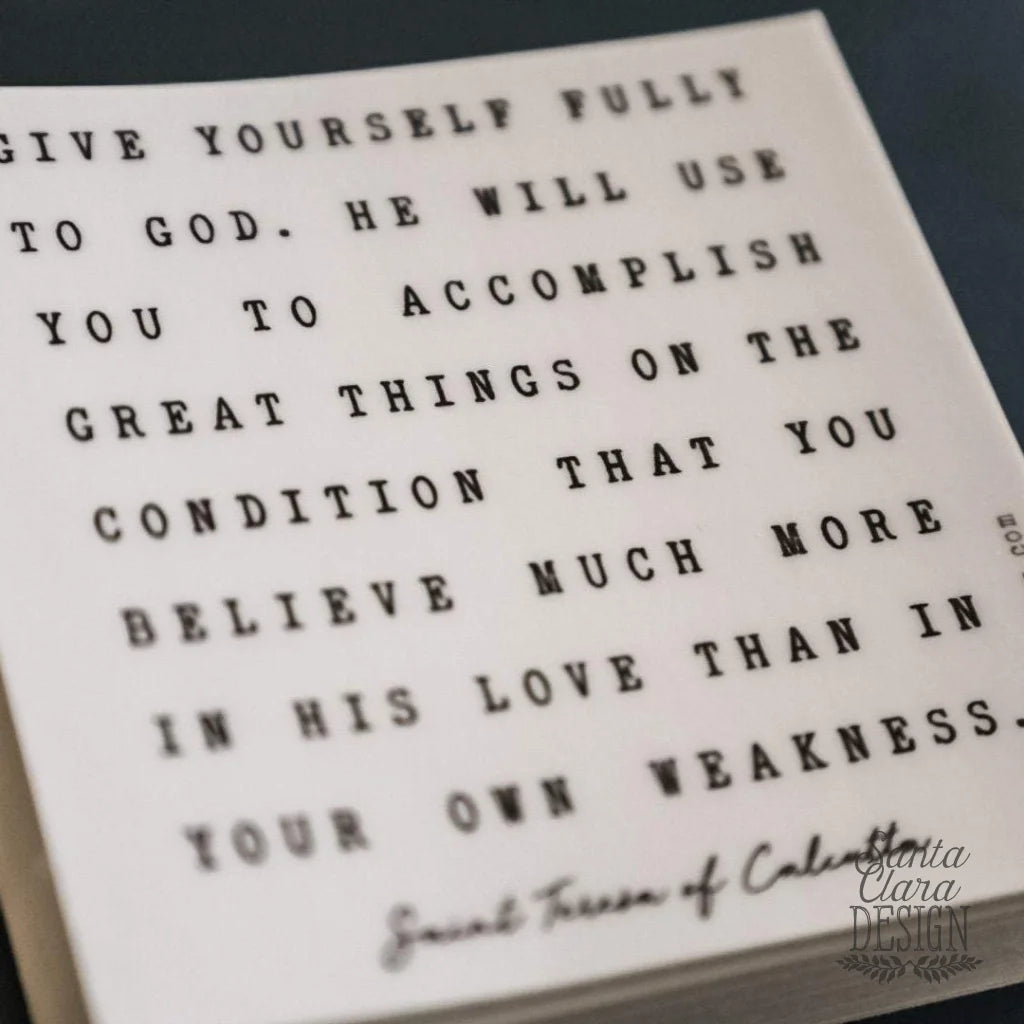 GIVE YOURSELF FULLY
TO GOD. HE WILL USE
YOU TO ACCOMPLISH
GREAT THINGS ON THE
CONDITION THAT YOU
BELIEVE MUCH MORE
IN HIS LOVE THAN IN
YOUR OWN WEAKNESS.
Saint Teresa of Calcutta
Santa
Clara
DESIGN